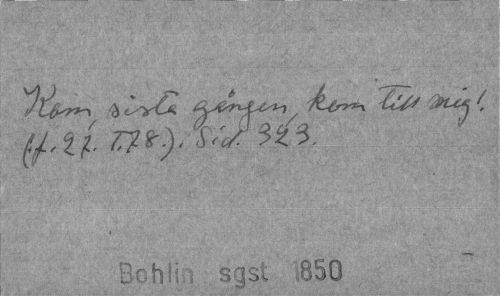 Kom, sista gången, kom till mig!
(:f. 27. T.78.). Sid. 323.
Bohlin sgst 1850